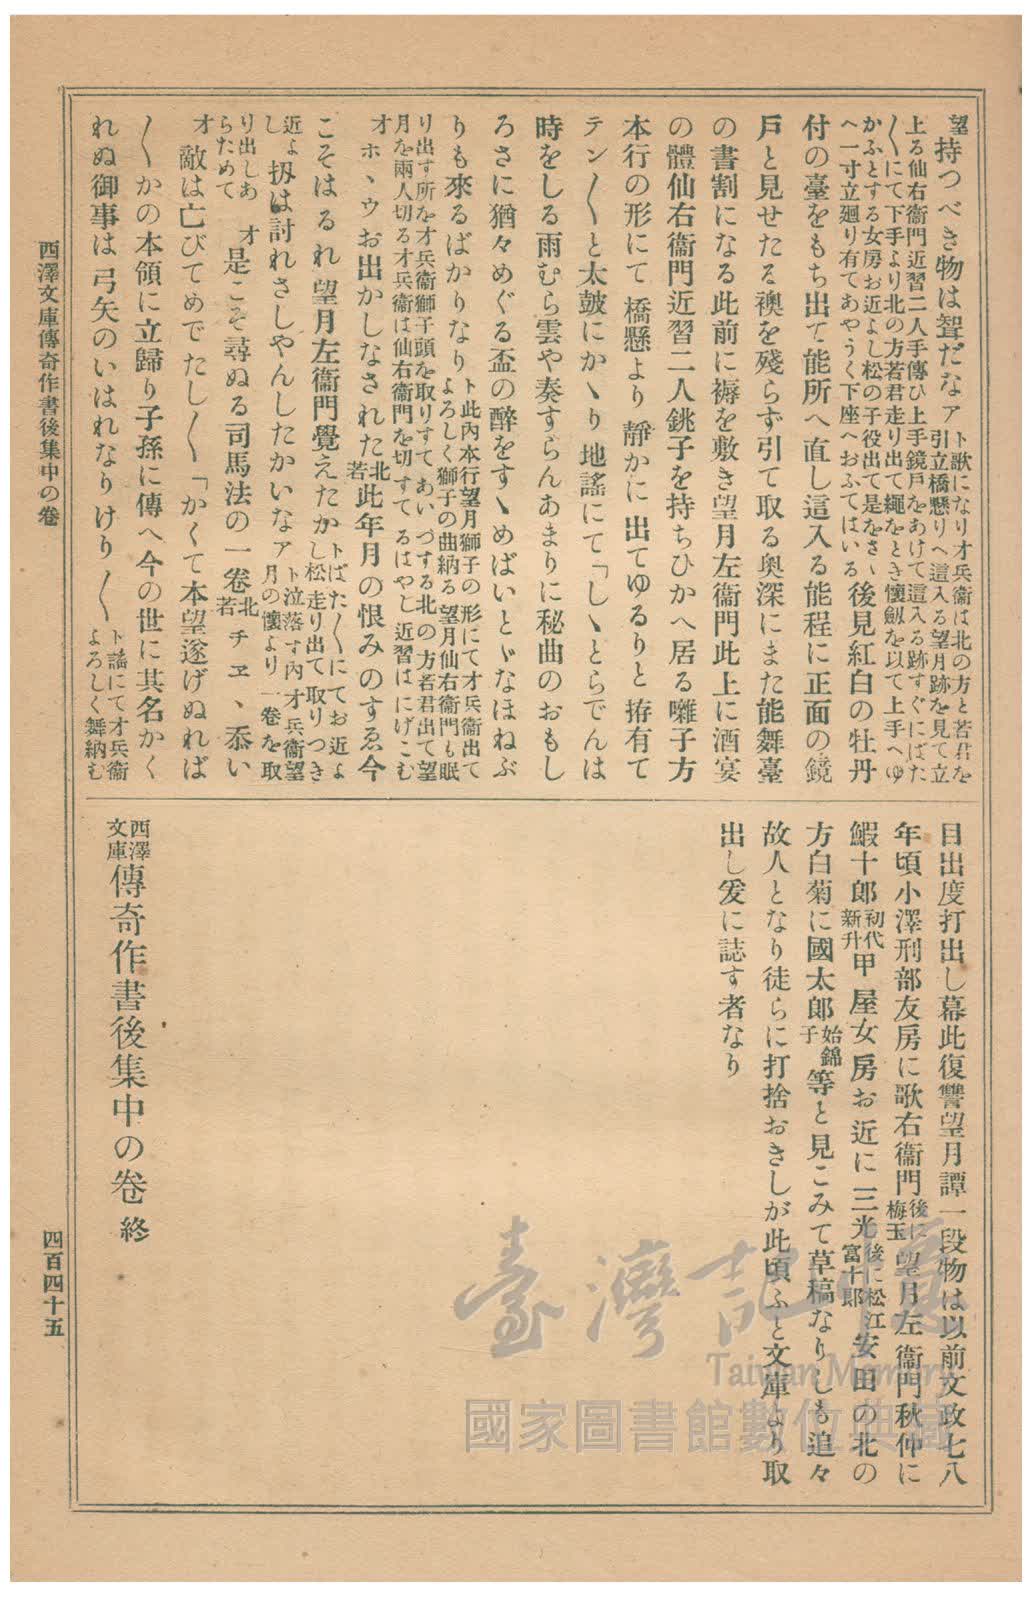 望持つべき物は聟だなア ト歌になり才兵衞は北の方と若君を
引立橋懸りへ這入る望月跡を見て立
上る仙右衞門近習二人手傳ひ上手鏡戸をあけて這入る跡すぐにばた
〱にて下手より北の方若君走り出て繩をとき懷劔を以て上手へゆ
かふとする女房お近よし松の子役出て是をさゝ
へ一寸立廻り有てあやうく下座へおふてはいる
後見紅白の牡丹
付の臺をもち出て能所へ直し這入る能程に正面の鏡
戸と見せたる襖を殘らず引て取る奥深にまた能舞臺
の書割になる此前に褥を敷き望月左衞門此上に酒宴
の體仙右衞門近習二人銚子を持ちひかへ居る囃子方
本行の形にて橋懸より靜かに出てゆるりと拵有て
テン〱と太皷にかゝり地謠にて「しゝとらでんは
時をしる雨むら雲や奏すらんあまりに秘曲のおもし
ろさに猶々めぐる盃の醉をすゝめばいとゞなほねぶ
りも來るばかりなり ト此內本行望月獅子の形にて才兵衞出て
よろしく獅子の曲納る望月仙右衞門も眠
り出す所を才兵衞獅子頭を取りすてあいづする北の方若君出て望
月を兩人切る才兵衞は仙右衞門を切すてるはやし近習はにげこむ
才 ホヽウお出かしなされた 北若 此年月の恨みのすゑ今
こそはるれ望月左衞門覺えたか トばた〱にてお近よ
し松走り出て取りつき
近よし 扨は討れさしやんしたかいなア ト泣落す內才兵衞望
月の懷より一卷を取
り出しあ
らためて
才 是こそ尋ぬる司馬法の一卷 北若 チエヽ忝い
才 敵は亡びてめでたし〱「かくて本望遂げぬれば
〱かの本領に立歸り子孫に傳へ今の世に其名かく
れぬ御事は弓矢のいはれなりけり〱 ト謠にて才兵衞
よろしく舞納む
目出度打出し幕此復讐望月譚一段物は以前文政七八
年頃小澤刑部友房に歌右衞門 後に梅玉 望月左衞門秋仲に
鰕十郎 初代新升 甲屋女房お近に三光 後に松江富十郎 安田の北の
方白菊に國太郎 始錦子 等と見こみて草稿なりしも追々
故人となり徒らに打捨おきしが此頃ふと文庫より取
出し爰に誌す者なり
西澤文庫 傳奇作書後集中の卷 終
西澤文庫傳奇作書後集中の卷
四百四十五
臺灣記憶
Taiwan Memory
國家圖書館數位典藏